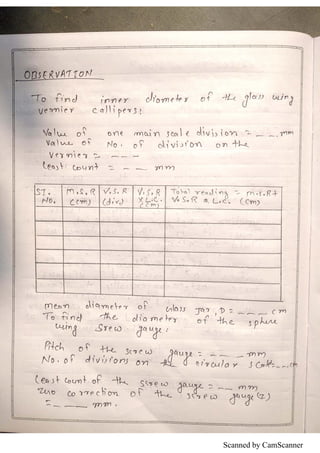 OBSERVATION
To find inner diameter of the glass using
vernier callipers:
Value of one main scale division = _ _ _ mm
Value of No. of division on the
vernier = _ _ _
least count = _ _ _ mm
SI. No. | M.S.R (cm) | V.S.R (div) | V.S.R x L.C. (cm) | Total reading = M.S.R + V.S.R x L.C. (cm)
mean diameter of glass jar, D = _ _ _ _ cm
To find the diameter of the sphere
using Srew gauge:
Pitch of the screw gauge = _ _ _ mm
No. of divisions on the circular scale = _ _ cm
least count of the screw gauge = _ _ mm
zero correction of the screw gauge (z)
= _ _ _ mm.
Scanned by CamScanner